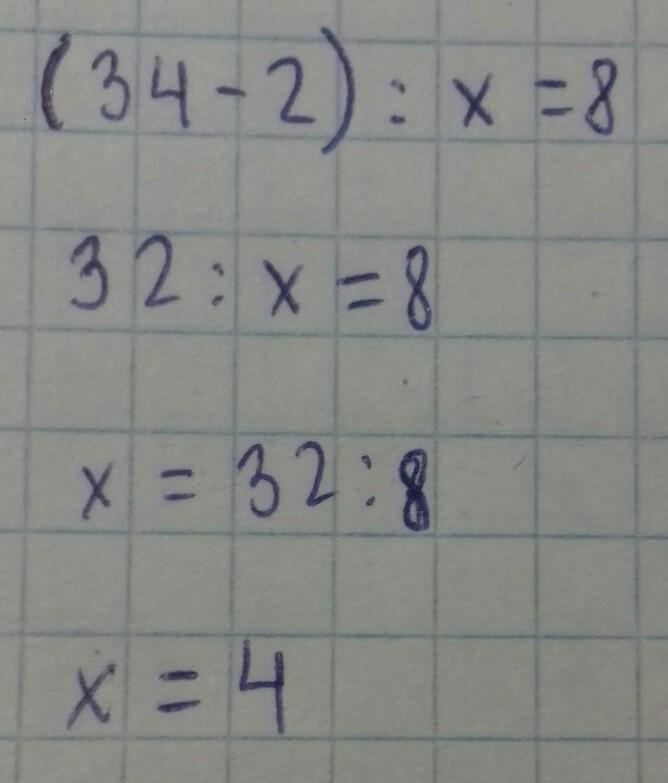 (34-2) : x = 8
32 : x = 8
x = 32 : 8
x = 4